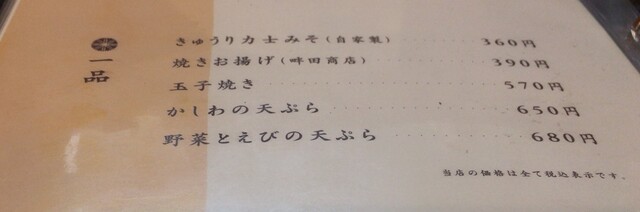 一品
きゅうり力士みそ(自家製) 360円
焼きお揚げ(畔田商店) 390円
玉子焼き 570円
かしわの天ぷら 650円
野菜とえびの天ぷら 680円
当店の価格は全て税込表示です。